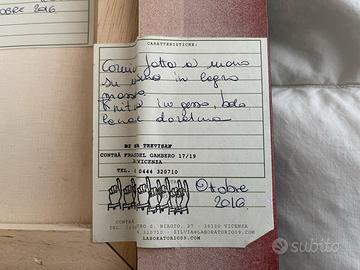 OBRE 2016
CARATTERISTICHE:
Cornice fatta a mano
su in legno
massa
finita in gesso, bolo
DI TREVISAN
CONTRÀ FRASREL GAMBERO 17/19
VICENZA
TEL. 0444 320710
Ottobre
2016
CONTRÀ S. BIAGIO, 27 - 36100 VICENZA
320710 - SILVIA@LABORATORIO09.COM
LABORATORIO09.COM
subito